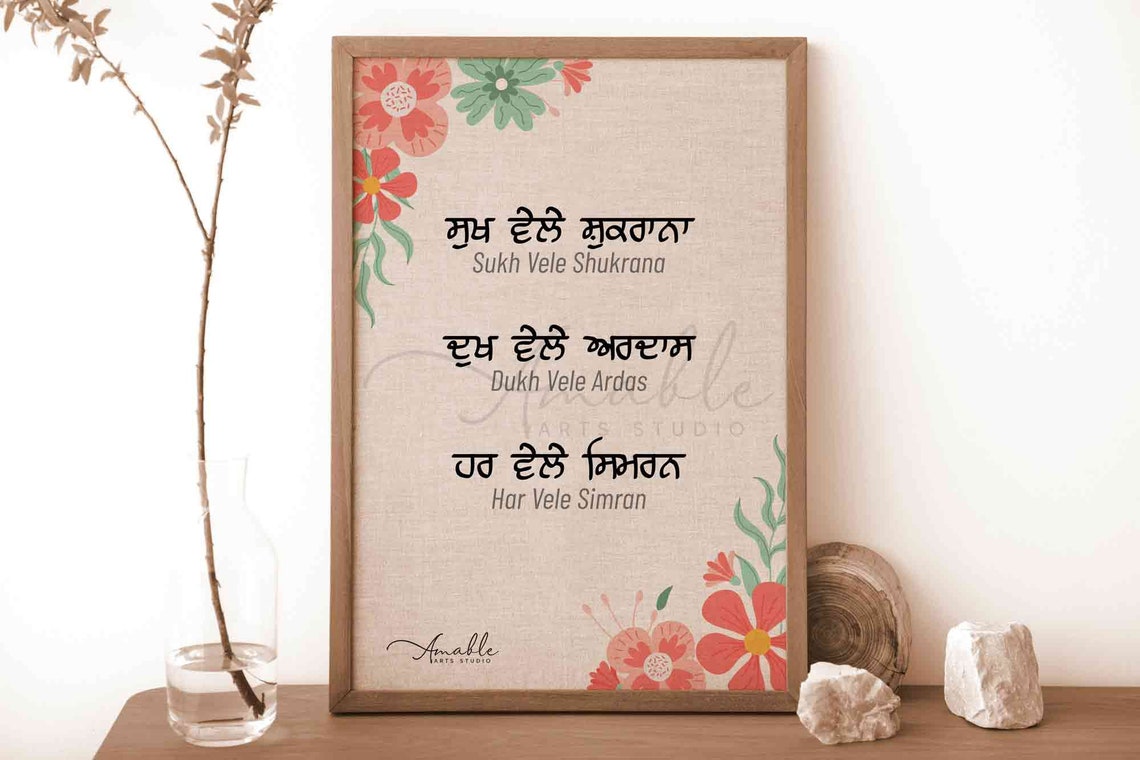 ਸੁਖ ਵੇਲੇ ਸ਼ੁਕਰਾਨਾ
Sukh Vele Shukrana
ਦੁਖ ਵੇਲੇ ਅਰਦਾਸ
Dukh Vele Ardas
Amable
ARTS STUDIO
ਹਰ ਵੇਲੇ ਸਿਮਰਨ
Har Vele Simran
Amable
ARTS STUDIO